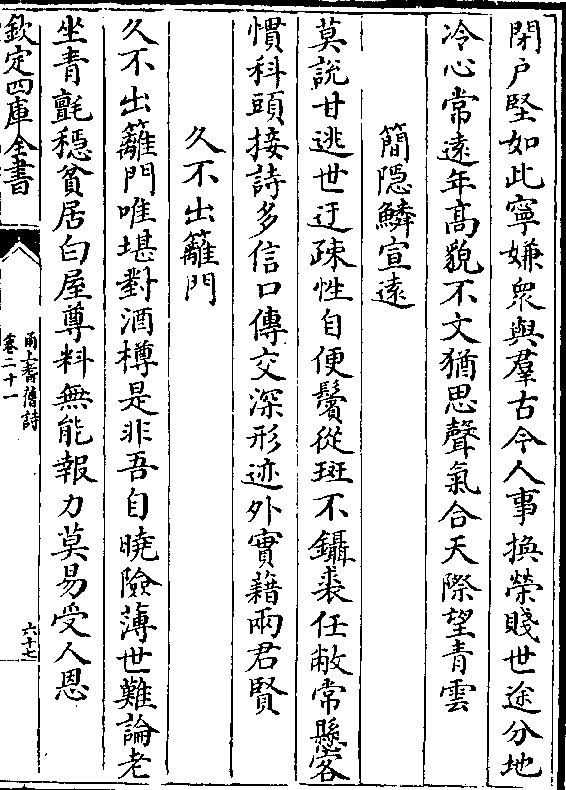 閉户堅如此寧嫌衆與羣古今人事換榮賤世途分地
冷心常遠年髙貌不文猶思聲氣合天際望青雲
簡隠鱗宣遠
莫說甘逃世迂疎性自便鬢從斑不鑷裘任敝常懸客
慣科頭接詩多信口傳交深形迹外實藉兩君賢
久不出籬門
久不出籬門唯堪對酒樽是非吾自曉險薄世難論老
坐青氊穩貧居白屋尊料無能報力莫易受人恩
欽定四庫全書
甬上耆舊詩
卷二十一
六十七